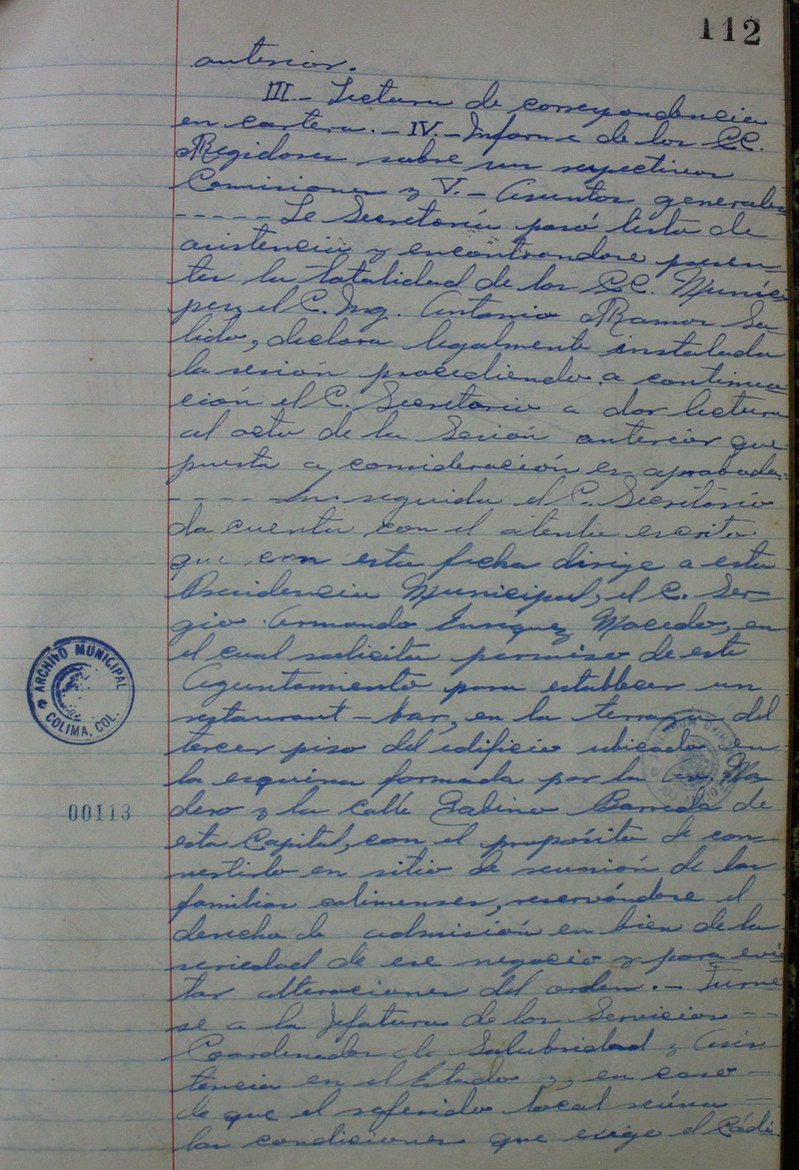 112
anterior.
III.- Lectura de correspondencia
en cartera.- IV.- Informe de los CC.
Regidores sobre sus respectivas
Comisiones y V.- Asuntos generales
----- La Secretaría pasó lista de
asistencia y encontrandose presen-
tes la totalidad de los CC. Muníci
pes, el C. Ing. Antonio Ramos Sa
lido, declara legalmente instalada
la sesión procediendo a continua
ción el C. Secretario a dar lectura
al acta de la Sesión anterior que
puesta a consideración es aprobada.
---- En seguida el C. Secretario
da cuenta con el atento escrito
que con esta fecha dirige a esta
Presidencia Municipal, el C. Ser-
gio Armando Enríquez Macedo, en
el cual solicita permiso de este
Ayuntamiento para establecer un
restaurant-bar, en la terraza del
tercer piso del edificio ubicado en
la esquina formada por la Av. Ma
dero y la calle Gabino Barreda de
esta Capital, con el propósito de con-
vertirlo en sitio de reunión de las
familias colimenses, reservándose el
derecho de admisión en bien de la
seriedad de ese negocio y para evi
tar alteraciones del orden.- Turne
se a la Jefatura de los Servicios --
Coordinados de Salubridad y Asis
tencia en el Estado y, en caso -
de que el referido local reúna -
las condiciones que exige el Códi
ARCHIVO MUNICIPAL
COLIMA, COL.
00113